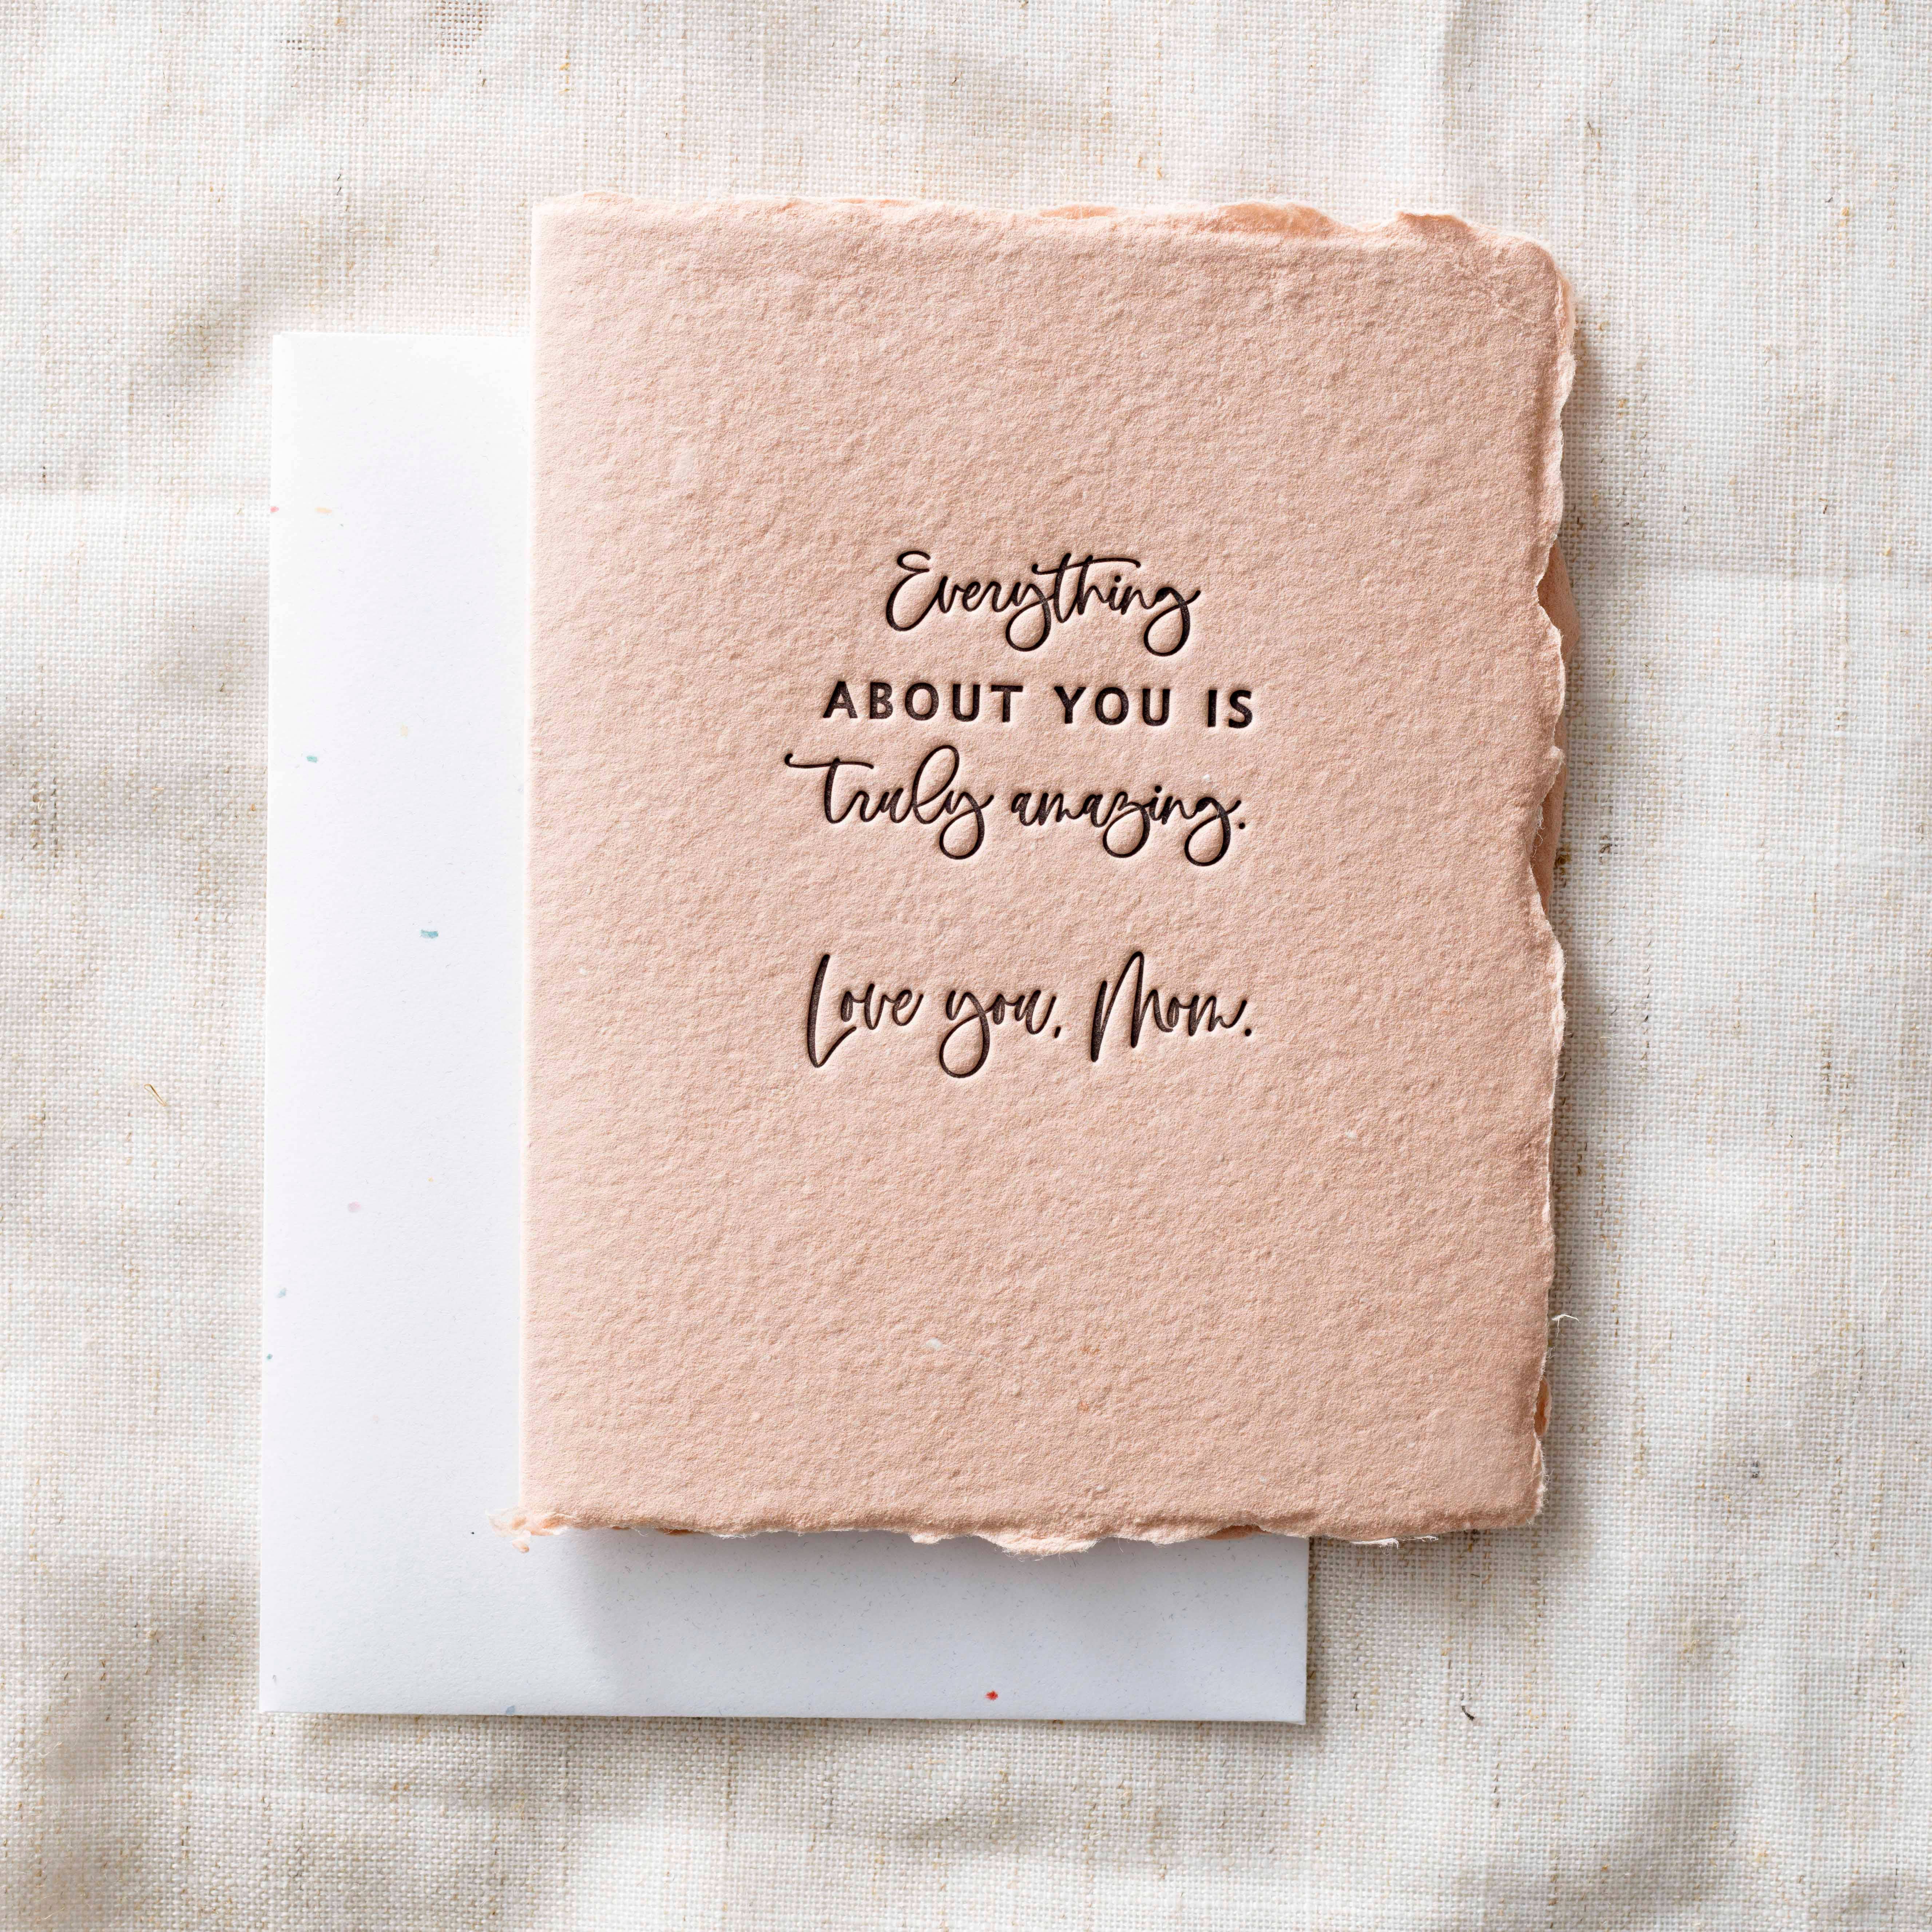 Everything
ABOUT YOU IS
Truly amazing.
Love you, Mom.